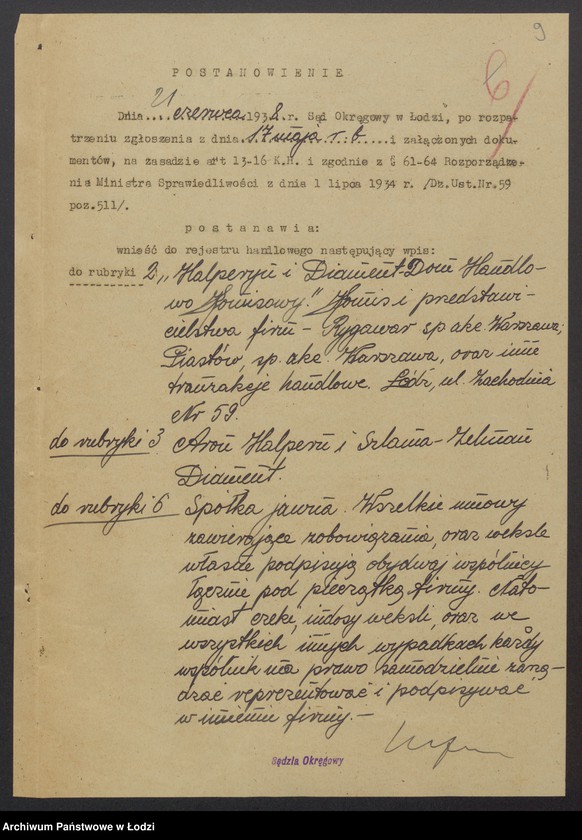 9
6/
POSTANOWIENIE
Dnia....21 czerwca.1938.r. Sąd Okręgowy w Łodzi, po rozpa-
trzeniu zgłoszenia z dnia.17 maja r. b.....i załączonych doku-
mentów, na zasadzie art 13-16 K.H. i zgodnie z § 61-64 Rozporządze-
nia Ministra Sprawiedliwości z dnia 1 lipca 1934 r. /Dz.Ust.Nr.59
poz.511/.
postanawia:
wnieść do rejestru handlowego następujący wpis:
do rubryki 2. „Halperyn i Diament-Dom Handlo-
wo Komisowy." Komis i przedstawi-
cielstwa firm - Rygawar sp. akc. Warszawa;
Piastów, sp. akc. Warszawa, oraz inne
tranzakcje handlowe. Łódź, ul. Zachodnia
Nr 59.
do rubryki 3 Aron Halpern i Szlama-Zelman
Diament.
do rubryki 6 Spółka jawna. Wszelkie umowy
zawierające zobowiązania, oraz weksle
własne podpisują obydwaj wspólnicy
łącznie pod pieczątką firmy. Nato-
miast czeki, indosy weksli, oraz we
wszystkich innych wypadkach każdy
wspólnik ma prawo samodzielnie zarzą-
dzać reprezentować i podpisywać
w imieniu firmy.-
Sędzia Okręgowy
Archiwum Państwowe w Łodzi